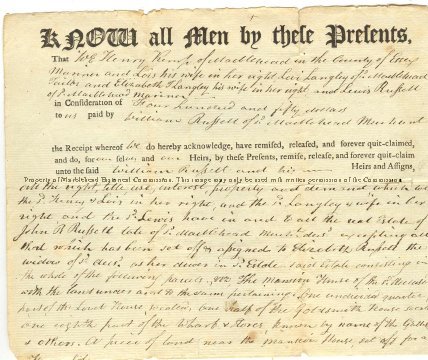 KNOW all Men by these Presents,
That We Henry of Marblehead in the County of Essex
Mariner and Lois his wife in her right Levi Langley of sd. Marblehead
and Elizabeth Langley his wife in her right and Lewis Russell
of sd. Marblehead Mariner
in Consideration of Four hundred and fifty dollars
to us paid by William Russell of sd. Marblehead Merchant
the Receipt whereof we do hereby acknowledge, have remised, released, and forever quit-claimed,
and do, for our selves and our Heirs, by these Presents, remise, release, and forever quit-claim
unto the said William Russell and his Heirs and Assigns,
Property of Marblehead Historical Commission. This image may only be used with written permission of the Commission.
all the right, title use, interest, property and demand which we
the sd. Henry & Lois in her right, and the sd. Langley & wife in her
right and the sd. Lewis have in and to all the real Estate of
John R Russell late of sd. Marblehead excepting all
that which has been set off & assigned to Elizabeth Russell the
widow of sd. as her dower in sd. Estate said Estate consisting in
the whole of the following parcels, viz. The Mansion House of the sd.
with the land under and to the same pertaining. One undivided quarter
part of the House half of the Goldsmith House
one eighth part of the Wharf & Stores known by name of the
& others. A piece of land near the mansion House set off for a